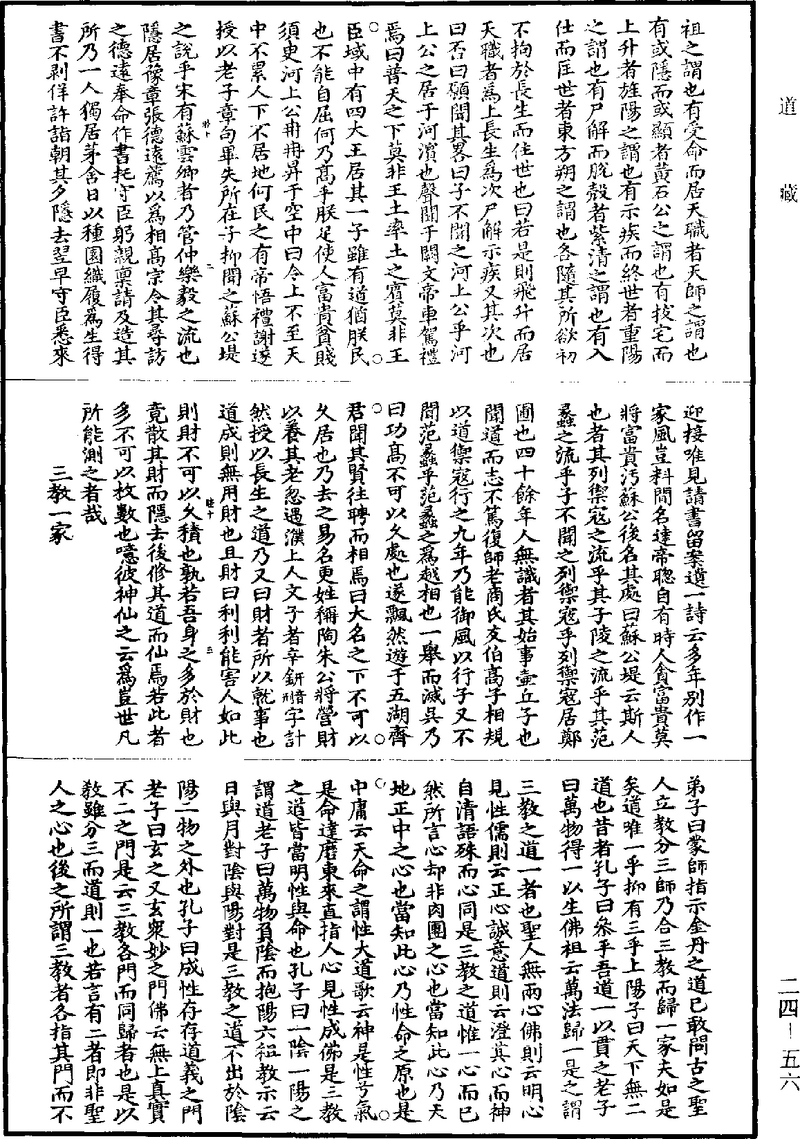 道藏
祖之謂也有受命而居天職者天師之謂也
有或隱而或顯者黃石公之謂也有拔宅而
上升者旌陽之謂也有示疾而終世者重陽
之謂也有尸解而脫殼者紫清之謂也有入
仕而匡世者東方朔之謂也各隨其所欲初
不拘於長生而住世也曰若是則飛升而居
天職者為上長生為次尸解示疾又其次也
曰否曰願聞其畧曰子不聞之河上公乎河
上公之居于河濱也聲聞于闕文帝車駕禮
焉曰普天之下莫非王土率土之賓莫非王
臣域中有四大王居其一子雖有道猶朕民
也不能自屈何乃高乎朕足使人富貴貧賤
須臾河上公冉冉昇于空中曰今上不至天
中不累人下不居地何民之有帝悟禮謝遂
授以老子章句畢失所在子抑聞之蘇公堤
之說乎宋有蘇雲卿者乃管仲樂毅之流也
隱居豫章張德遠薦以為相高宗令其尋訪
之德遠奉命作書托守臣躬親禀請及造其
所乃一人獨居茅舍日以種園織履為生得
書不剥佯許詣朝其夕隱去翌早守臣悉來
迎接唯見請書留案遺一詩云多年別作一
家風豈料閒名達帝聰自有時人貪富貴莫
將富貴汚蘇公後名其處曰蘇公堤云斯人
也者其列禦寇之流乎其子陵之流乎其范
蠡之流乎子不聞之列禦寇乎列禦寇居鄭
圃也四十餘年人無識者其始事壷丘子也
聞道而志不篤復師老商氏友伯高子相規
以道禦寇行之九年乃能御風以行子又不
聞范蠡乎范蠡之為越相也一舉而滅吳乃
曰功高不可以久處也遂飄然遊于五湖齊
君聞其賢往聘而相焉曰大名之下不可以
久居也乃去之易名更姓稱陶朱公將營財
以養其老忽遇濮上人文子者辛鈃字計
然授以長生之道乃又曰財者所以就事也
道成則無用財也且財曰利利能害人如此
則財不可以久積也孰若吾身之多於財也
竟散其財而隱去後修其道而仙焉若此者
多不可以枚數也噫彼神仙之云為豈世凡
所能測之者哉
三教一家
弟子曰蒙師指示金丹之道已敢問古之聖
人立教分三師乃合三教而歸一家夫如是
矣道唯一乎抑有三乎上陽子曰天下無二
道也昔者孔子曰參乎吾道一以貫之老子
曰萬物得一以生佛祖云萬法歸一是之謂
三教之道一者也聖人無兩心佛則云明心
見性儒則云正心誠意道則云澄其心而神
自清語殊而心同是三教之道惟一心而已
然所言心却非肉團之心也當知此心乃天
地正中之心也當知此心乃性命之原也是
中庸云天命之謂性大道歌云神是性兮氣
是命達磨東來直指人心見性成佛是三教
之道皆當明性與命也孔子曰一陰一陽之
謂道老子曰萬物負陰而抱陽六祖教示云
日與月對陰與陽對是三教之道不出於陰
陽二物之外也孔子曰成性存存道義之門
老子曰玄之又玄衆妙之門佛云無上真實
不二之門是云三教各門而同歸者也是以
教雖分三而道則一也若言有二者即非聖
人之心也後之所謂三教者各指其門而不
二四–五六